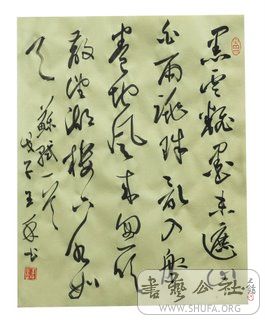 黑雲翻墨未遮山
白雨跳珠亂入船
卷地風來忽吹
散望湖樓下水如
天 蘇軾一首
戊子王書
書藝公社
WWW.SHUFA.ORG